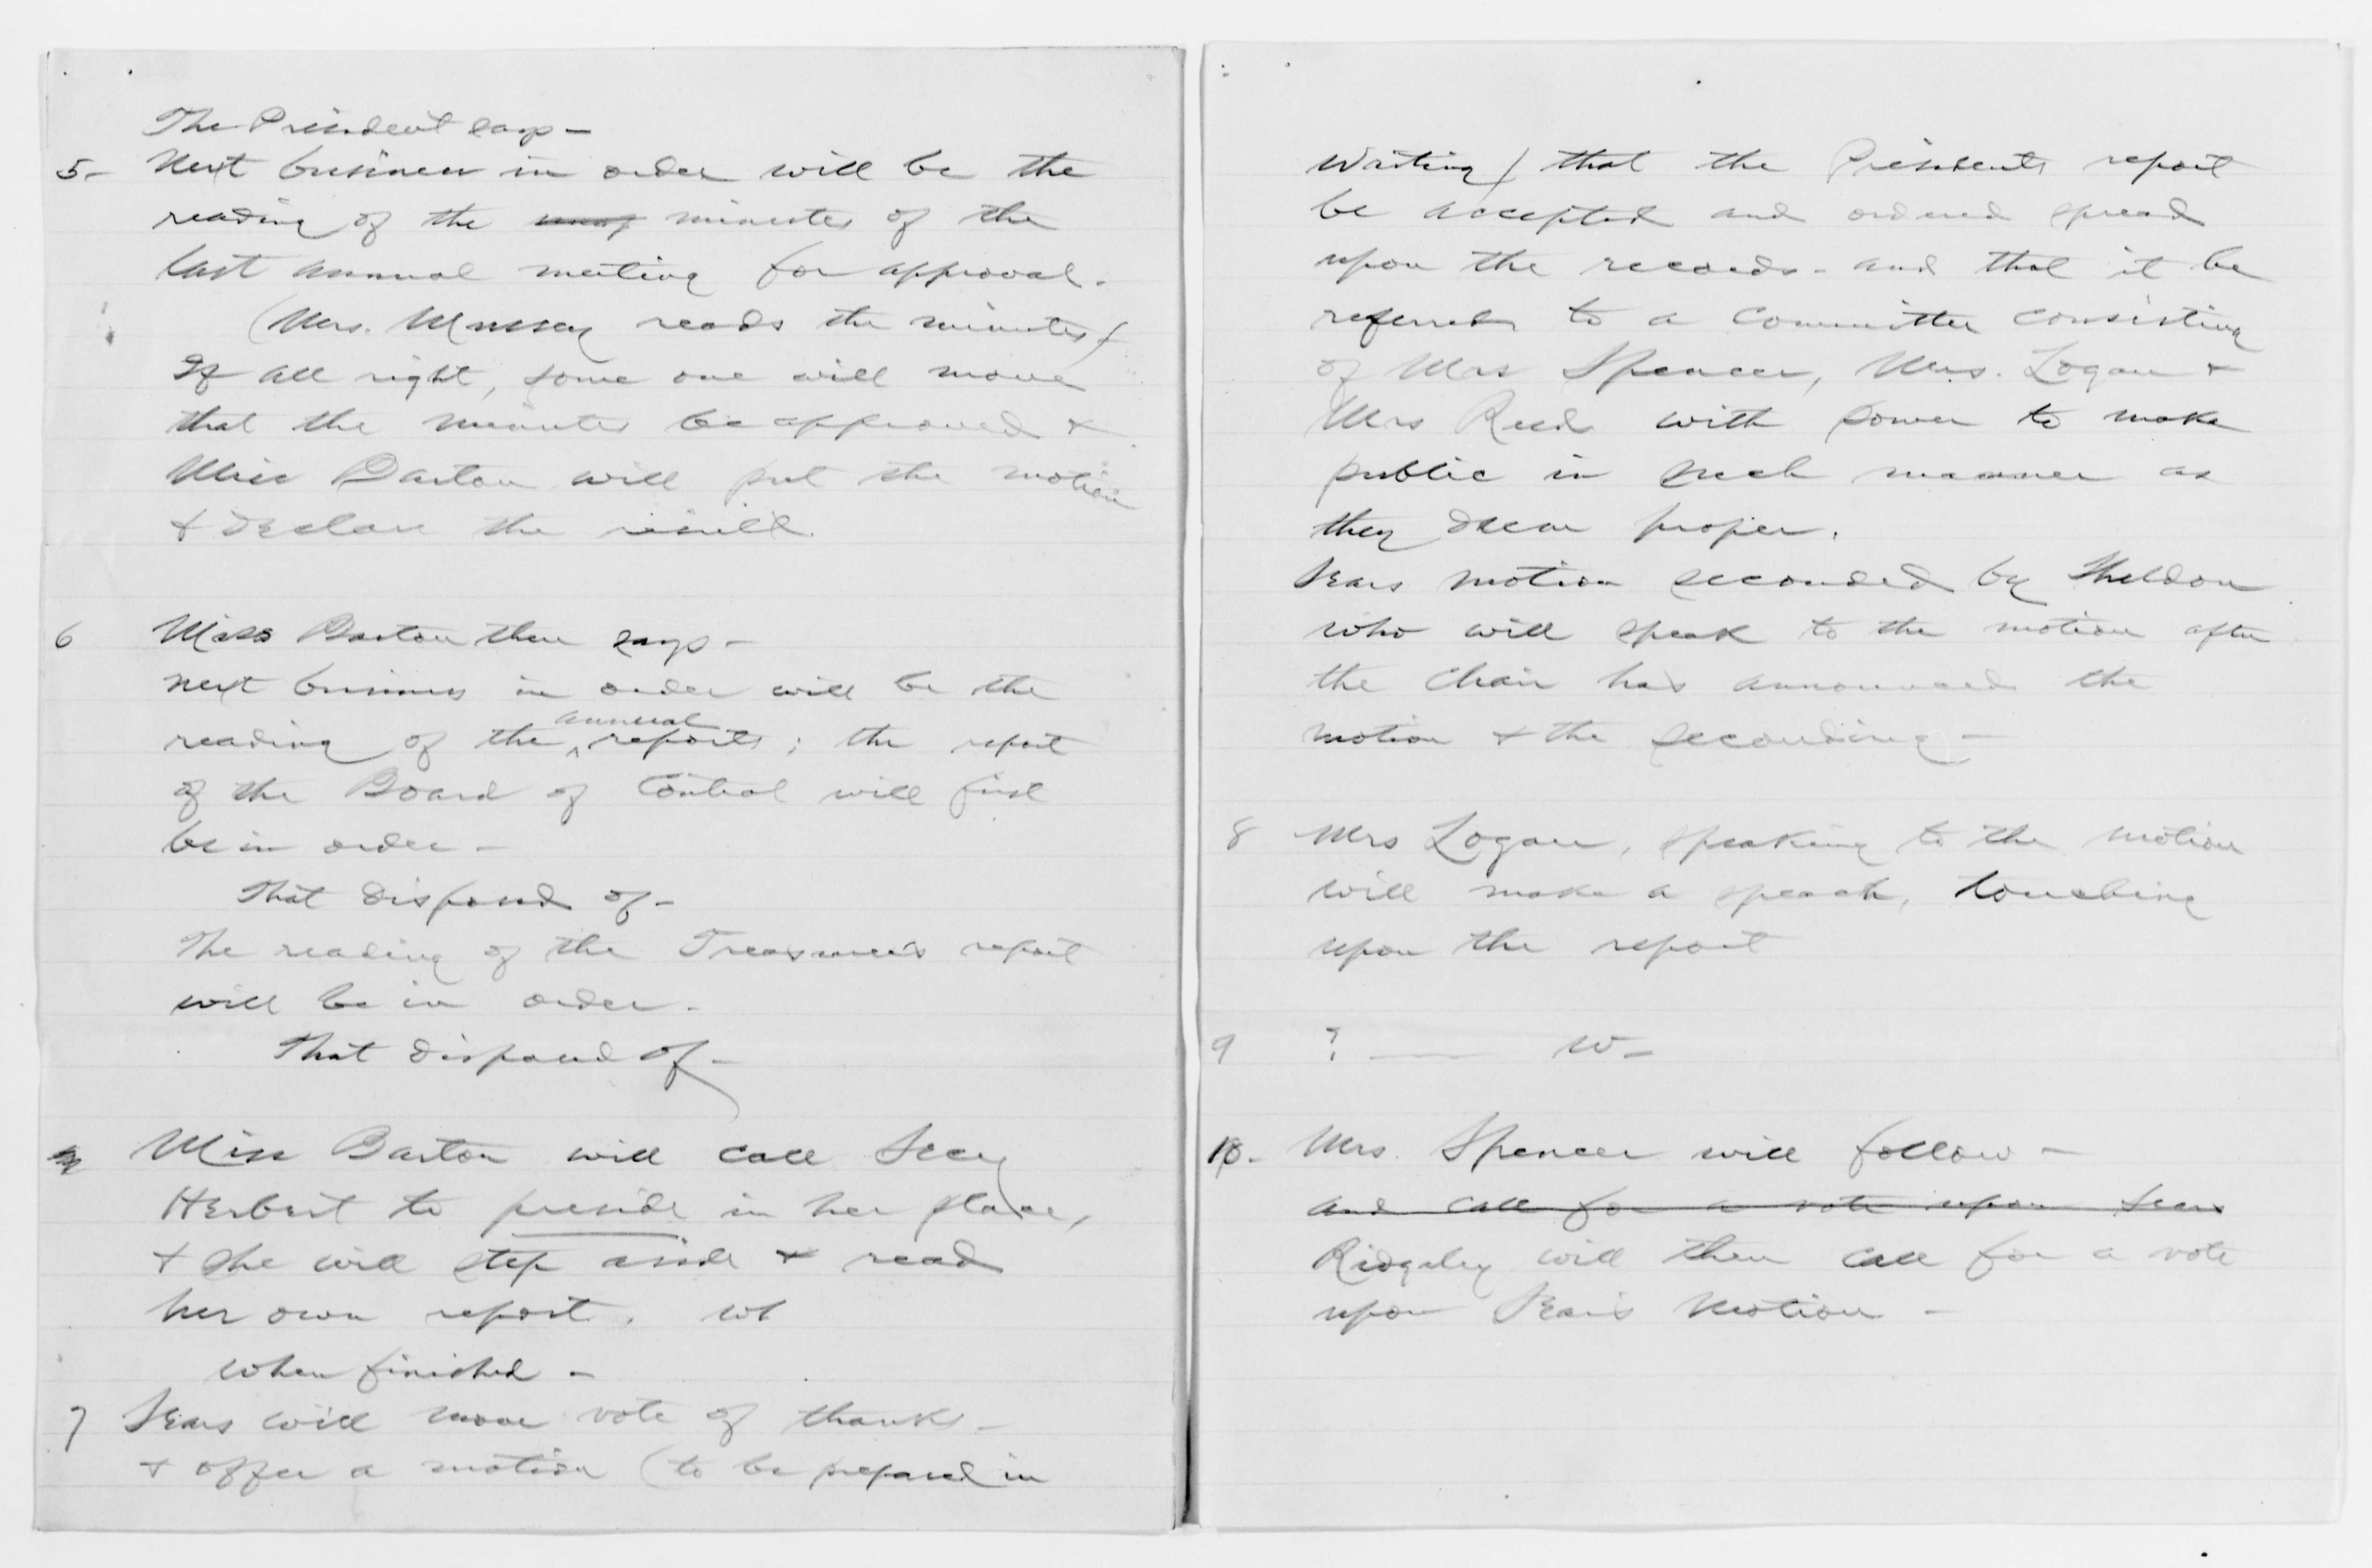 The President says -
5- Next business in order will be the
reading of the minutes of the
last annual meeting for approval.
(Mrs. Mussey reads the minutes)
If all right, some one will move
that the minutes be approved &
Miss Barton will put the motion
& declare the result.
6 Miss Barton then says -
next business in order will be the
annual
reading of the ^ reports; the report
of the Board of Control will first
be in order -
That disposed of -
The reading of the Treasurer's report
will be in order -
That disposed of -
Miss Barton will call Secy
Herbert to preside in her place,
& she will step aside & read
her own report, wh
when finished -
7 Sears will move vote of thanks -
& offer a motion (to be prepared in
Writing) that the Presidents report
be accepted and ordered spread
upon the records - and that it be
referred to a Committee consisting
of Mrs Spencer, Mrs. Logan &
Mrs Reed with power to make
public in such manner as
they deem proper.
Sears motion seconded by Sheldon
who will speak to the motion after
the Chair has announced the
motion & the seconding -
8 Mrs Logan, speaking to the motion
will make a speech, touching
upon the report
9 ? — W -
10. Mrs. Spencer will follow -
and call for a vote upon Sears
Ridgeley will then call for a vote
upon Sears motion -